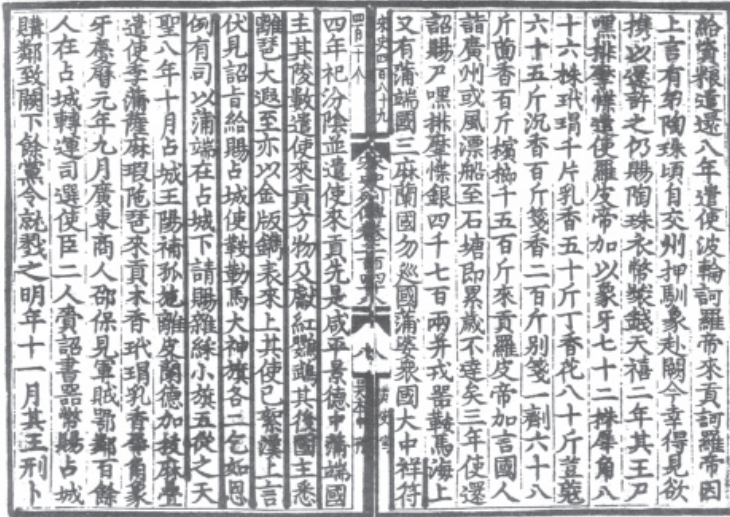 給資糧遣還八年遣使波輪訶羅帝來貢訶羅帝因
上言有弟陶珠頃自交州押馴象赴闕今幸得見欲
攜以還許之仍賜陶珠衣幣裝錢天禧二年其王尸
嘿排摩慄遣使羅皮帝加以象牙七十二株犀角八
十六株玳瑁千片乳香五十斤丁香花八十斤荳蔻
六十五斤沉香百斤箋香二百斤別箋一劑六十八
斤茴香百斤檳榔千五百斤來貢羅皮帝加言國人
詣廣州或風漂船至石塘即累歲不達矣三年使還
詔賜尸嘿排摩慄銀四千七百兩并戎器鞍馬海上
又有蒲端國三麻蘭國勿巡國蒲婆衆國大中祥符
宋史四百八十九
四年祀汾陰並遣使來貢先是咸平景德中蒲端國
主其陵數遣使來貢方物及獻紅鸚鵡其後國主悉
離琶大遐至亦以金版鐫表來上其使已絮漢上言
伏見詔旨給賜占城使鞍勒馬大神旗各二乞如恩
例有司以蒲端在占城下請賜雜綵小旗五從之天
聖八年十月占城王陽補孤施離皮蘭德加拔麻疊
遣使李蒲薩麻瑕陁琶來貢木香玳瑁乳香犀角象
牙慶曆元年九月廣東商人邵保見軍賊鄂鄰百餘
人在占城轉運司選使臣二人賫詔書器幣賜占城
購鄰致闕下餘黨令就戮之明年十一月其王刑卜